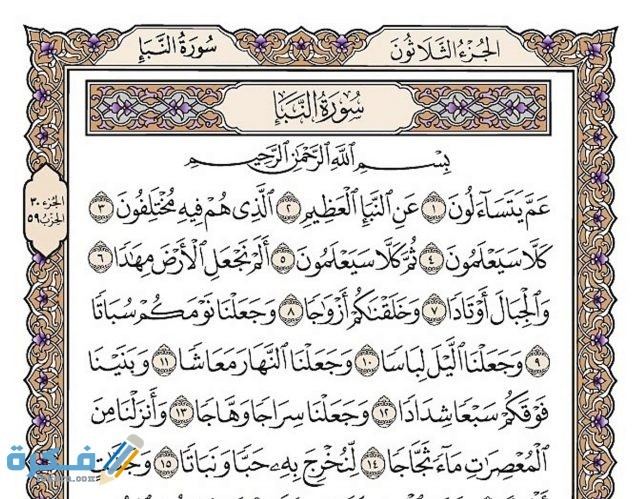 الجُزْءُ الثَّلَاثُونَ
سُورَةُ النَّبَإِ
سُورَةُ النَّبَإِ
بِسْمِ ٱللَّهِ ٱلرَّحْمَٰنِ ٱلرَّحِيمِ
الجزء ٣٠
الحزب ٥٩
عَمَّ يَتَسَآءَلُونَ ١ عَنِ ٱلنَّبَإِ ٱلْعَظِيمِ ٢ ٱلَّذِى هُمْ فِيهِ مُخْتَلِفُونَ ٣
كَلَّا سَيَعْلَمُونَ ٤ ثُمَّ كَلَّا سَيَعْلَمُونَ ٥ أَلَمْ نَجْعَلِ ٱلْأَرْضَ مِهَٰدًا ٦
وَٱلْجِبَالَ أَوْتَادًا ٧ وَخَلَقْنَٰكُمْ أَزْوَٰجًا ٨ وَجَعَلْنَا نَوْمَكُمْ سُبَاتًا
٩ وَجَعَلْنَا ٱلَّيْلَ لِبَاسًا ١٠ وَجَعَلْنَا ٱلنَّهَارَ مَعَاشًا ١١ وَبَنَيْنَا
فَوْقَكُمْ سَبْعًا شِدَادًا ١٢ وَجَعَلْنَا سِرَاجًا وَهَّاجًا ١٣ وَأَنزَلْنَا مِنَ
ٱلْمُعْصِرَٰتِ مَآءً ثَجَّاجًا ١٤ لِّنُخْرِجَ بِهِۦ حَبًّا وَنَبَاتًا ١٥ وَجَنَّٰتٍ
فكرة